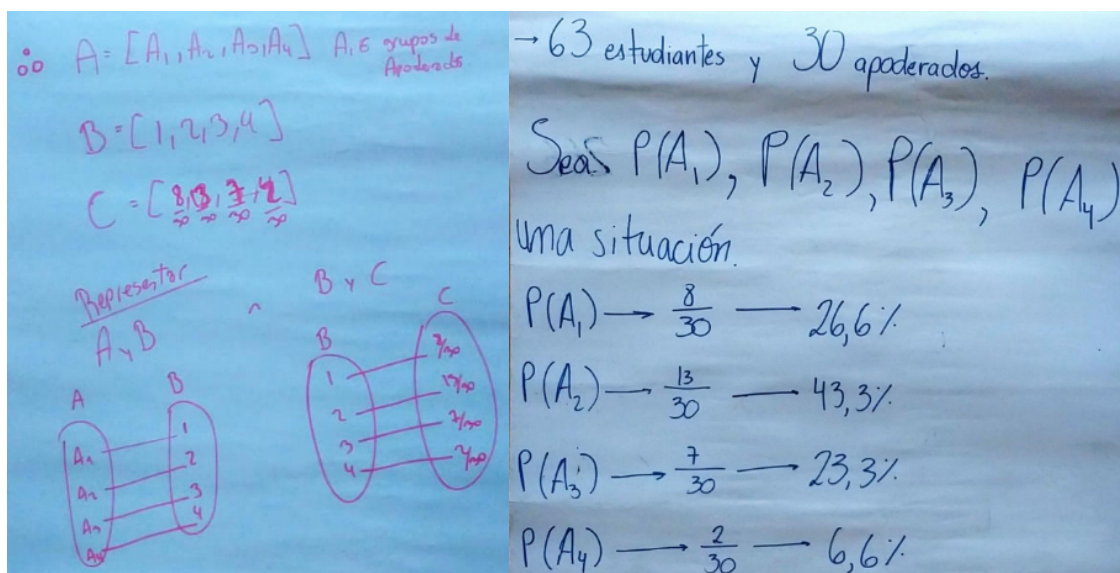 ∴ A = [A₁, A₂, A₃, A₄] A₁ ∈ grupos de
Apoderado
B = [1, 2, 3, 4]
C = [8/30, 13/30, 7/30, 2/30]
Representar
A y B
A B
A₁ 1
A₂ 2
A₃ 3
A₄ 4
^
B y C
B C
1 8/30
2 13/30
3 7/30
4 2/30
→ 63 estudiantes y 30 apoderados.
Seas P(A₁), P(A₂), P(A₃), P(A₄)
uma situación.
P(A₁) → 8/30 — 26,6%
P(A₂) → 13/30 — 43,3%
P(A₃) → 7/30 — 23,3%
P(A₄) → 2/30 — 6,6%